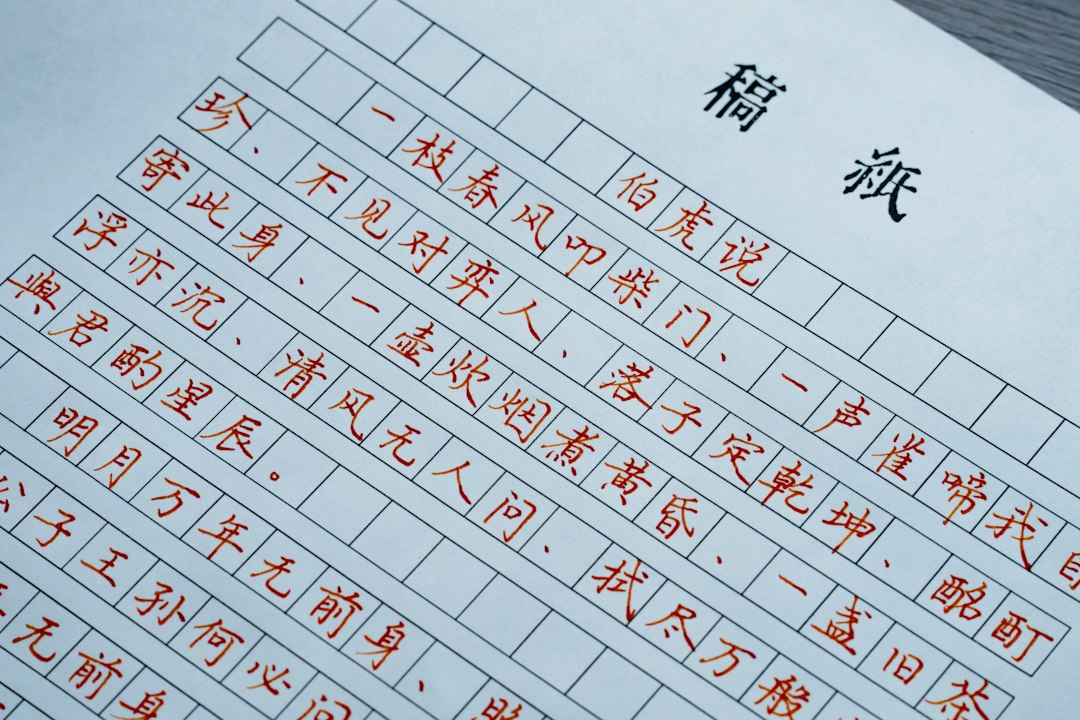 稿紙
伯虎说
一枝春风叩柴门、一声雀啼我
珍、不见对弈人、落子定乾坤、酩酊
寄此身、一壶炊烟煮黄昏、一盏旧茶
浮亦沉、清风无人问、拭尽万般
與君酌星辰。
明月万年无前身、照
公子王孙何必问
无前身